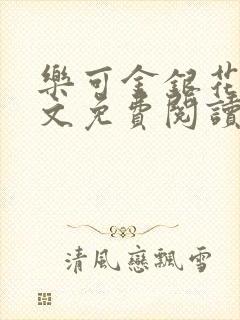 樂可金銀花
文免費閱讀
清風戀飄雪